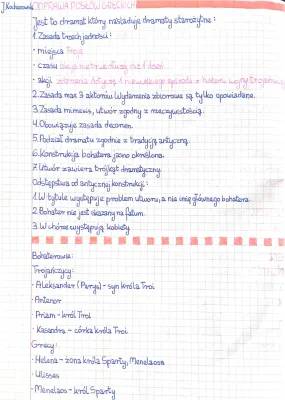 J. Kochanowski ODPRAWA POSŁÓW GRECKICH
Jest to dramat który naśladuje dramaty starożytne:
1. Zasada trzech jedności:
- miejsca Troja
- czasu akcja nie trwa dłużej niż 1 dzień
- akcji zdarzenia dotyczą 1 niewielkiego epizodu z historii wojny trojańskiej
2. Zasada max 3 aktorów. Wydarzenia zbiorowe są tylko opowiadane.
3. Zasada mimesis, utwór zgodny z rzeczywistością.
4. Obowiązuje zasada decorum.
5. Podział dramatu zgodnie z tradycją antyczną.
6. Konstrukcja bohatera jasno określona.
7. Utwór zawiera trójkąt dramatyczny.
Odstępstwa od antycznej konstrukcji:
1. W tytule występuje problem utworu, a nie imię głównego bohatera.
2. Bohater nie jest skazany na fatum.
3. W chórze występują kobiety.
Bohaterowie:
Trojańczycy:
- Aleksander (Parys) - syn króla Troi
- Antenor
- Priam - król Troi
- Kasandra - córka króla Troi
Grecy:
- Helena - żona króla Sparty, Menelaosa
- Ulisses
- Menelaos - król Sparty